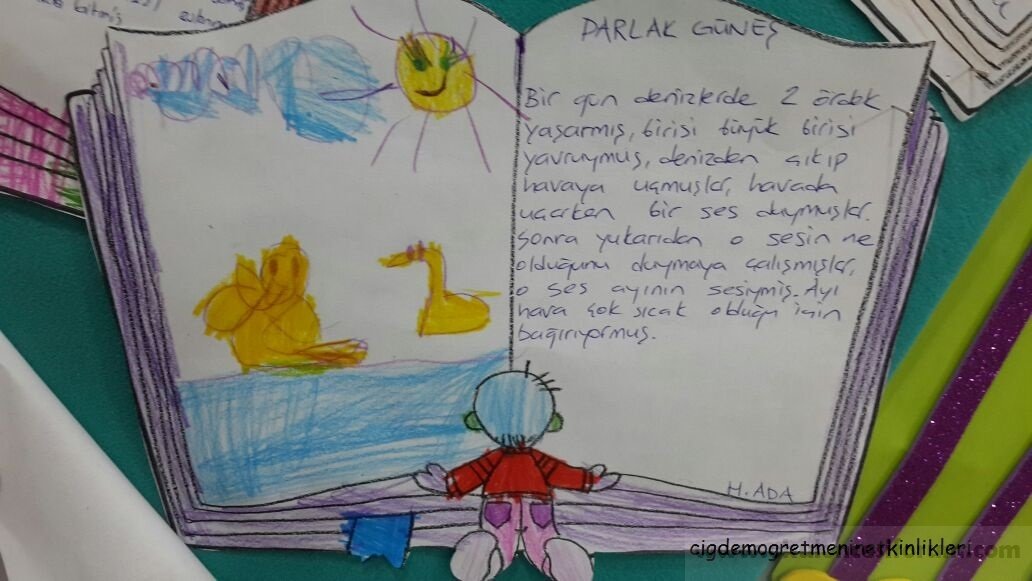 PARLAK GÜNEŞ
Bir gün denizlerde 2 ördek
yaşarmış, birisi büyük birisi
yavruymuş, denizden çıkıp
havaya uçmuşlar, havada
uçarken bir ses duymuşlar.
Sonra yukarıdan o sesin ne
olduğunu duymaya çalışmışlar,
o ses ayının sesiymiş. Ayı
hava çok sıcak olduğu için
bağırıyormuş.
H. ADA
cigdemogretmeninetkinlikleri.com